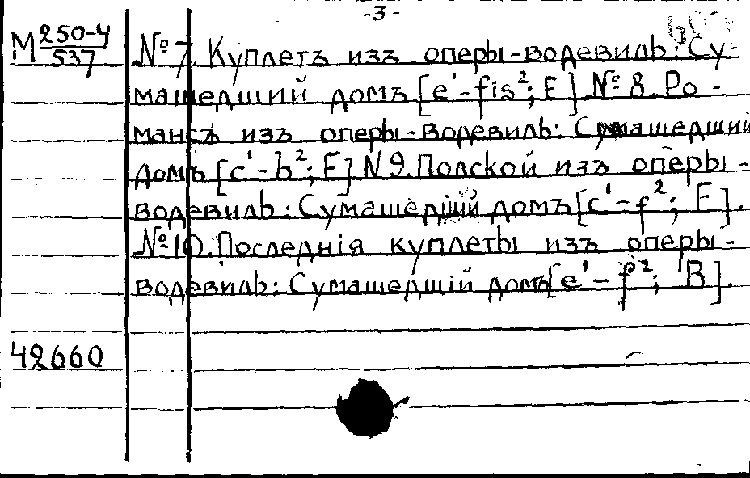 -3-
М 250-4/537 № 7. Куплетъ изъ оперы-водевиль: Су-
машедший домъ [e¹-fis²; E] № 8. Ро-
мансъ изъ оперы-водевиль: Сумашедший
домъ [c¹-b²; F] N 9. Полской изъ оперы-
водевиль: Сумашедшій домъ [c¹-f²; F].
№ 10. Последнія куплеты изъ оперы-
водевиль: Сумашедшій домъ [e¹-f²; B].
42660